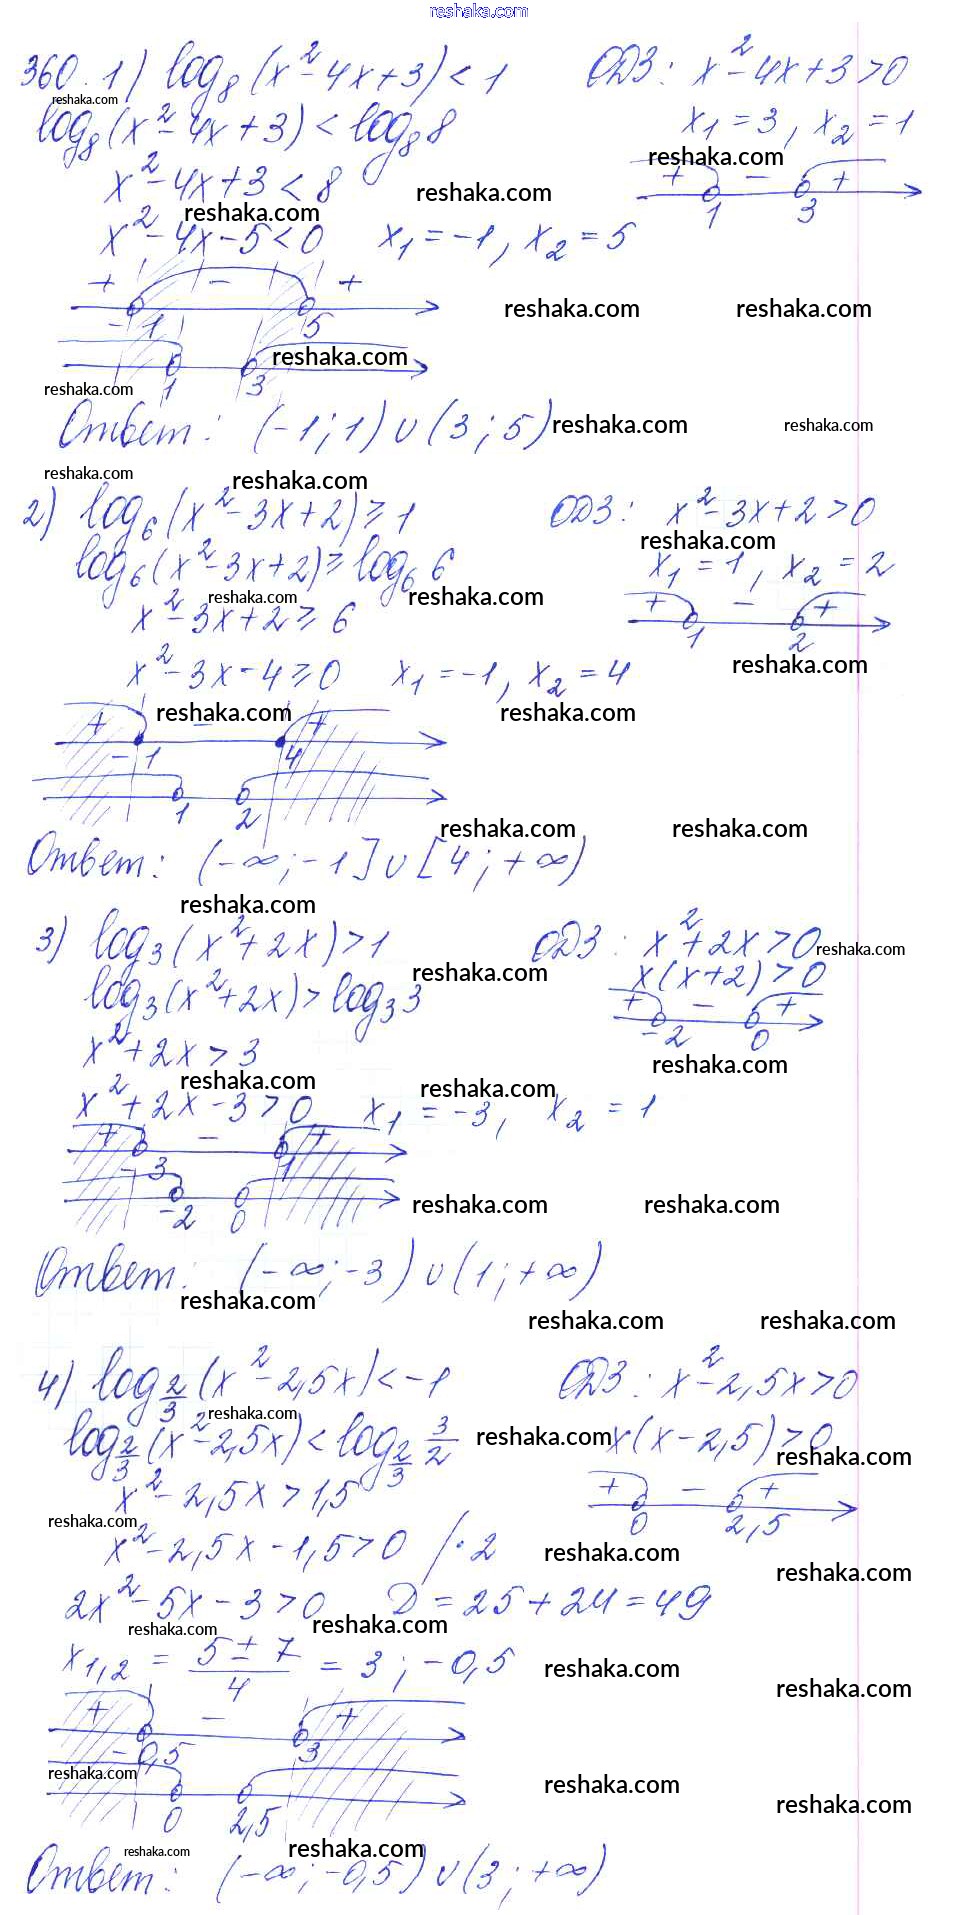 reshaka.com
360. 1) log₈(x²-4x+3)<1 ОДЗ: x²-4x+3>0
reshaka.com
log₈(x²-4x+3)<log₈8 x₁=3, x₂=1
reshaka.com
x²-4x+3<8 + - +
reshaka.com
1 3
reshaka.com
x²-4x-5<0 x₁=-1, x₂=5
+ - +
reshaka.com reshaka.com
-1 5
reshaka.com
reshaka.com
1 3
Ответ: (-1;1)∪(3;5)
reshaka.com reshaka.com
reshaka.com reshaka.com
2) log₆(x²-3x+2)≥1 ОДЗ: x²-3x+2>0
reshaka.com
log₆(x²-3x+2)≥log₆6 x₁=1, x₂=2
reshaka.com reshaka.com
x²-3x+2≥6 + - +
1 2
reshaka.com
x²-3x-4≥0 x₁=-1, x₂=4
reshaka.com reshaka.com
+ - +
-1 4
1 2
reshaka.com reshaka.com
Ответ: (-∞;-1]∪[4;+∞)
reshaka.com
3) log₃(x²+2x)>1 ОДЗ: x²+2x>0
reshaka.com
reshaka.com
log₃(x²+2x)>log₃3 x(x+2)>0
+ - +
-2 0
x²+2x>3
reshaka.com
reshaka.com reshaka.com
x²+2x-3>0 x₁=-3, x₂=1
+ - +
-3 1
-2 0
reshaka.com reshaka.com
Ответ: (-∞;-3)∪(1;+∞)
reshaka.com
reshaka.com reshaka.com
4) log_{2/3}(x²-2,5x)<-1 ОДЗ: x²-2,5x>0
reshaka.com
log_{2/3}(x²-2,5x)<log_{2/3} 3/2 x(x-2,5)>0
reshaka.com reshaka.com
x²-2,5x>1,5 + - +
0 2,5
reshaka.com
x²-2,5x-1,5>0 /·2
reshaka.com reshaka.com
2x²-5x-3>0 D=25+24=49
reshaka.com reshaka.com
x₁,₂ = (5±7)/4 = 3; -0,5
reshaka.com reshaka.com
+ - +
-0,5 3
reshaka.com reshaka.com
reshaka.com
0 2,5
reshaka.com reshaka.com
Ответ: (-∞;-0,5)∪(3;+∞)